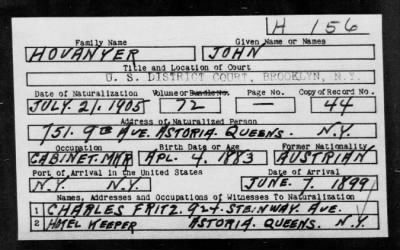 H 156
Family Name Given Name or Names
HOVANYER JOHN
Title and Location of Court
U. S. DISTRICT COURT, BROOKLYN, N.Y.
Date of Naturalization Volume or Bundle No. Page No. Copy of Record No.
JULY. 21. 1905 72 — 44
Address of Naturalized Person
751. 9TH AVE. ASTORIA. QUEENS. N.Y.
Occupation Birth Date or Age Former Nationality
CABINET. MKR APL. 4. 1883 AUSTRIAN
Port of Arrival in the United States Date of Arrival
N.Y. N.Y. JUNE. 7. 1899
Names, Addresses and Occupations of Witnesses To Naturalization
1 CHARLES FRITZ. 924. STEINWAY. AVE.
2 HOTEL KEEPER ASTORIA. QUEENS. N.Y.